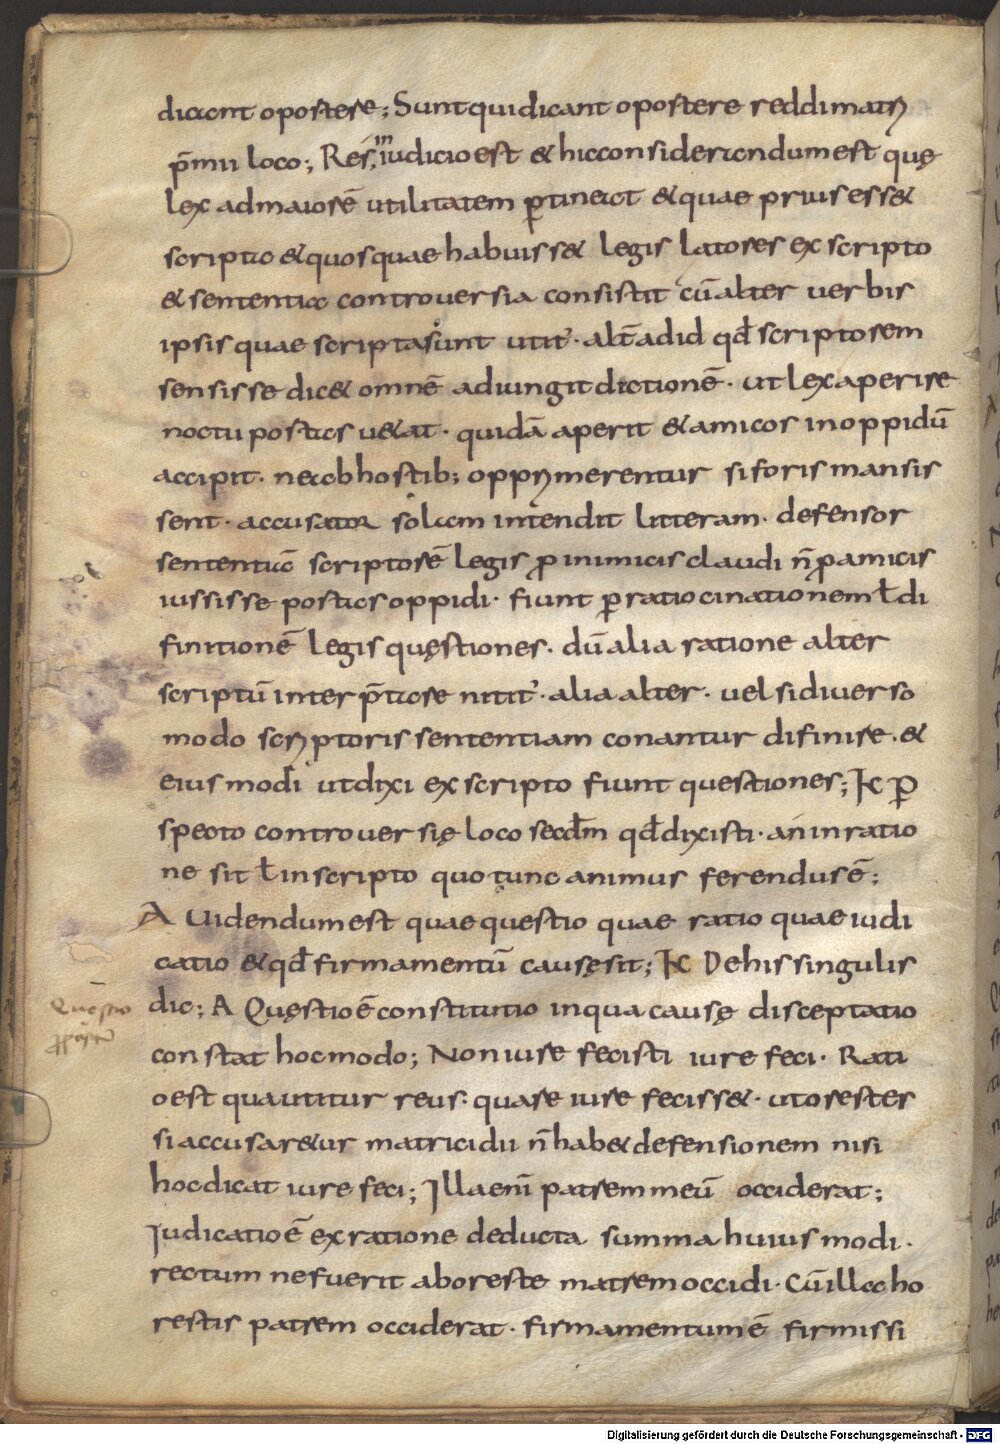 dicant oportere; Sunt qui dicant oportere reddi matri
p̄mii loco; Res in iudicio est & hic considerandum est quę
lex ad maiorē utilitatem ꝑtineat & quae prius ess&
scripta & quos quae habuiss& legis latores ex scripto
& sententia controuersia consistit cū alter uerbis
ipsis quae scripta sunt utit̄ · alt̄ ad id qđ scriptorem
sensisse dic& omnē adiungit dictionē · ut lex aperire
noctu portas u&at · quidā aperit & amicos in oppidū
accipit · ne ab hostib; opprimerentur si foris mansis
sent · accusator solam intendit litteram · defensor
sententiā scriptorē legis ꝓ inimicis claudi n̄ ꝓ amicis
iussisse portas oppidi · fiunt ꝑ ratiocinationem ł di
finitionē legis quęstiones · dū alia ratione alter
scriptū inter p̄tare nitit̄ · alia alter · uel si diuerso
modo scriptoris sententiam conantur difinire · &
eius modi ut dixi ex scripto fiunt questiones; K ꝑ
specto controuersię loco secđm qđ dixisti · an in ratio
ne sit ł in scripto quo tunc animus ferendus ē;
A Uidendum est quae questio quae ratio quae iudi
catio & qđ firmamentū causę sit; K De his singulis
dic; A Quęstio ē constitutio in qua causę disceptatio
constat hoc modo; Non iure fecisti iure feci · Rati
o est qua utitur reus · quare iure feciss& · ut orester
si accusar&ur matricidii n̄ hab& defensionem nisi
hoc dicat iure feci; Illa enī patrem meū occiderat;
Iudicatio ē ex ratione deducta summa huius modi ·
rectum ne fuerit ab oreste matrem occidi · Cū illa ho
restis patrem occiderat · firmamentum ē firmissi
Quęstio
Digitalisierung gefördert durch die Deutsche Forschungsgemeinschaft - DFG